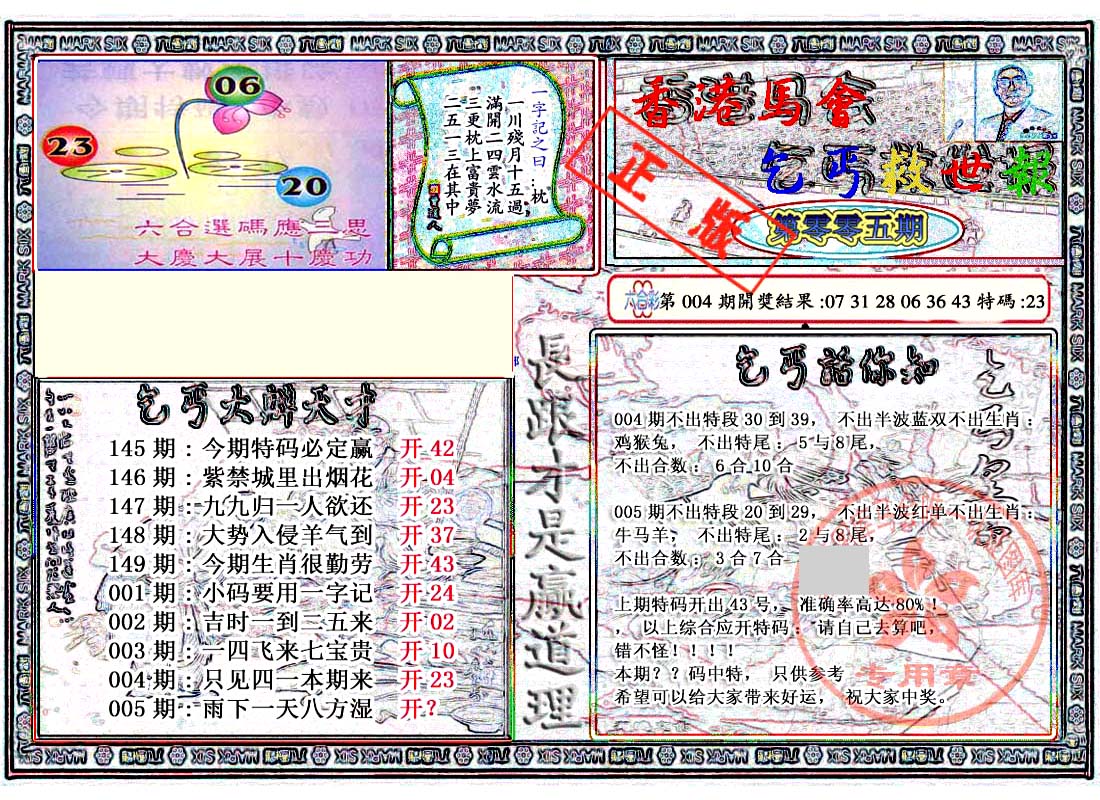 MARK SIX
06
23
20
六合選碼應三思
大慶大展十慶功
一字記之曰:枕
一川殘月十五過
滿開二四雲水流
三更枕上富貴夢
二五一三在其中
香港馬會
乞丐救世報
第零零五期
正版
六合彩第 004 期開獎結果 :07 31 28 06 36 43 特碼 :23
長跟才是贏道理
145 期：今期特码必定赢 开 42
146 期：紫禁城里出烟花 开 04
147 期：九九归一人欲还 开 23
148 期：大势入侵羊气到 开 37
149 期：今期生肖很勤劳 开 43
001 期：小码要用一字记 开 24
002 期：吉时一到三五来 开 02
003 期：一四飞来七宝贵 开 10
004 期：只见四一本期来 开 23
005 期：雨下一天八方湿 开 ?
乞丐話你知
004 期不出特段 30 到 39， 不出半波蓝双不出生肖：
鸡猴兔， 不出特尾： 5 与 8 尾，
不出合数： 6 合 10 合
005 期不出特段 20 到 29， 不出半波红单不出生肖：
牛马羊， 不出特尾： 2 与 8 尾，
不出合数： 3 合 7 合
上期特码开出 43 号， 准确率高达 80%！
， 以上综合应开特码： 请自己去算吧，
错不怪！！！！
本期？？码中特， 只供参考
希望可以给大家带来好运， 祝大家中奖。
专用章